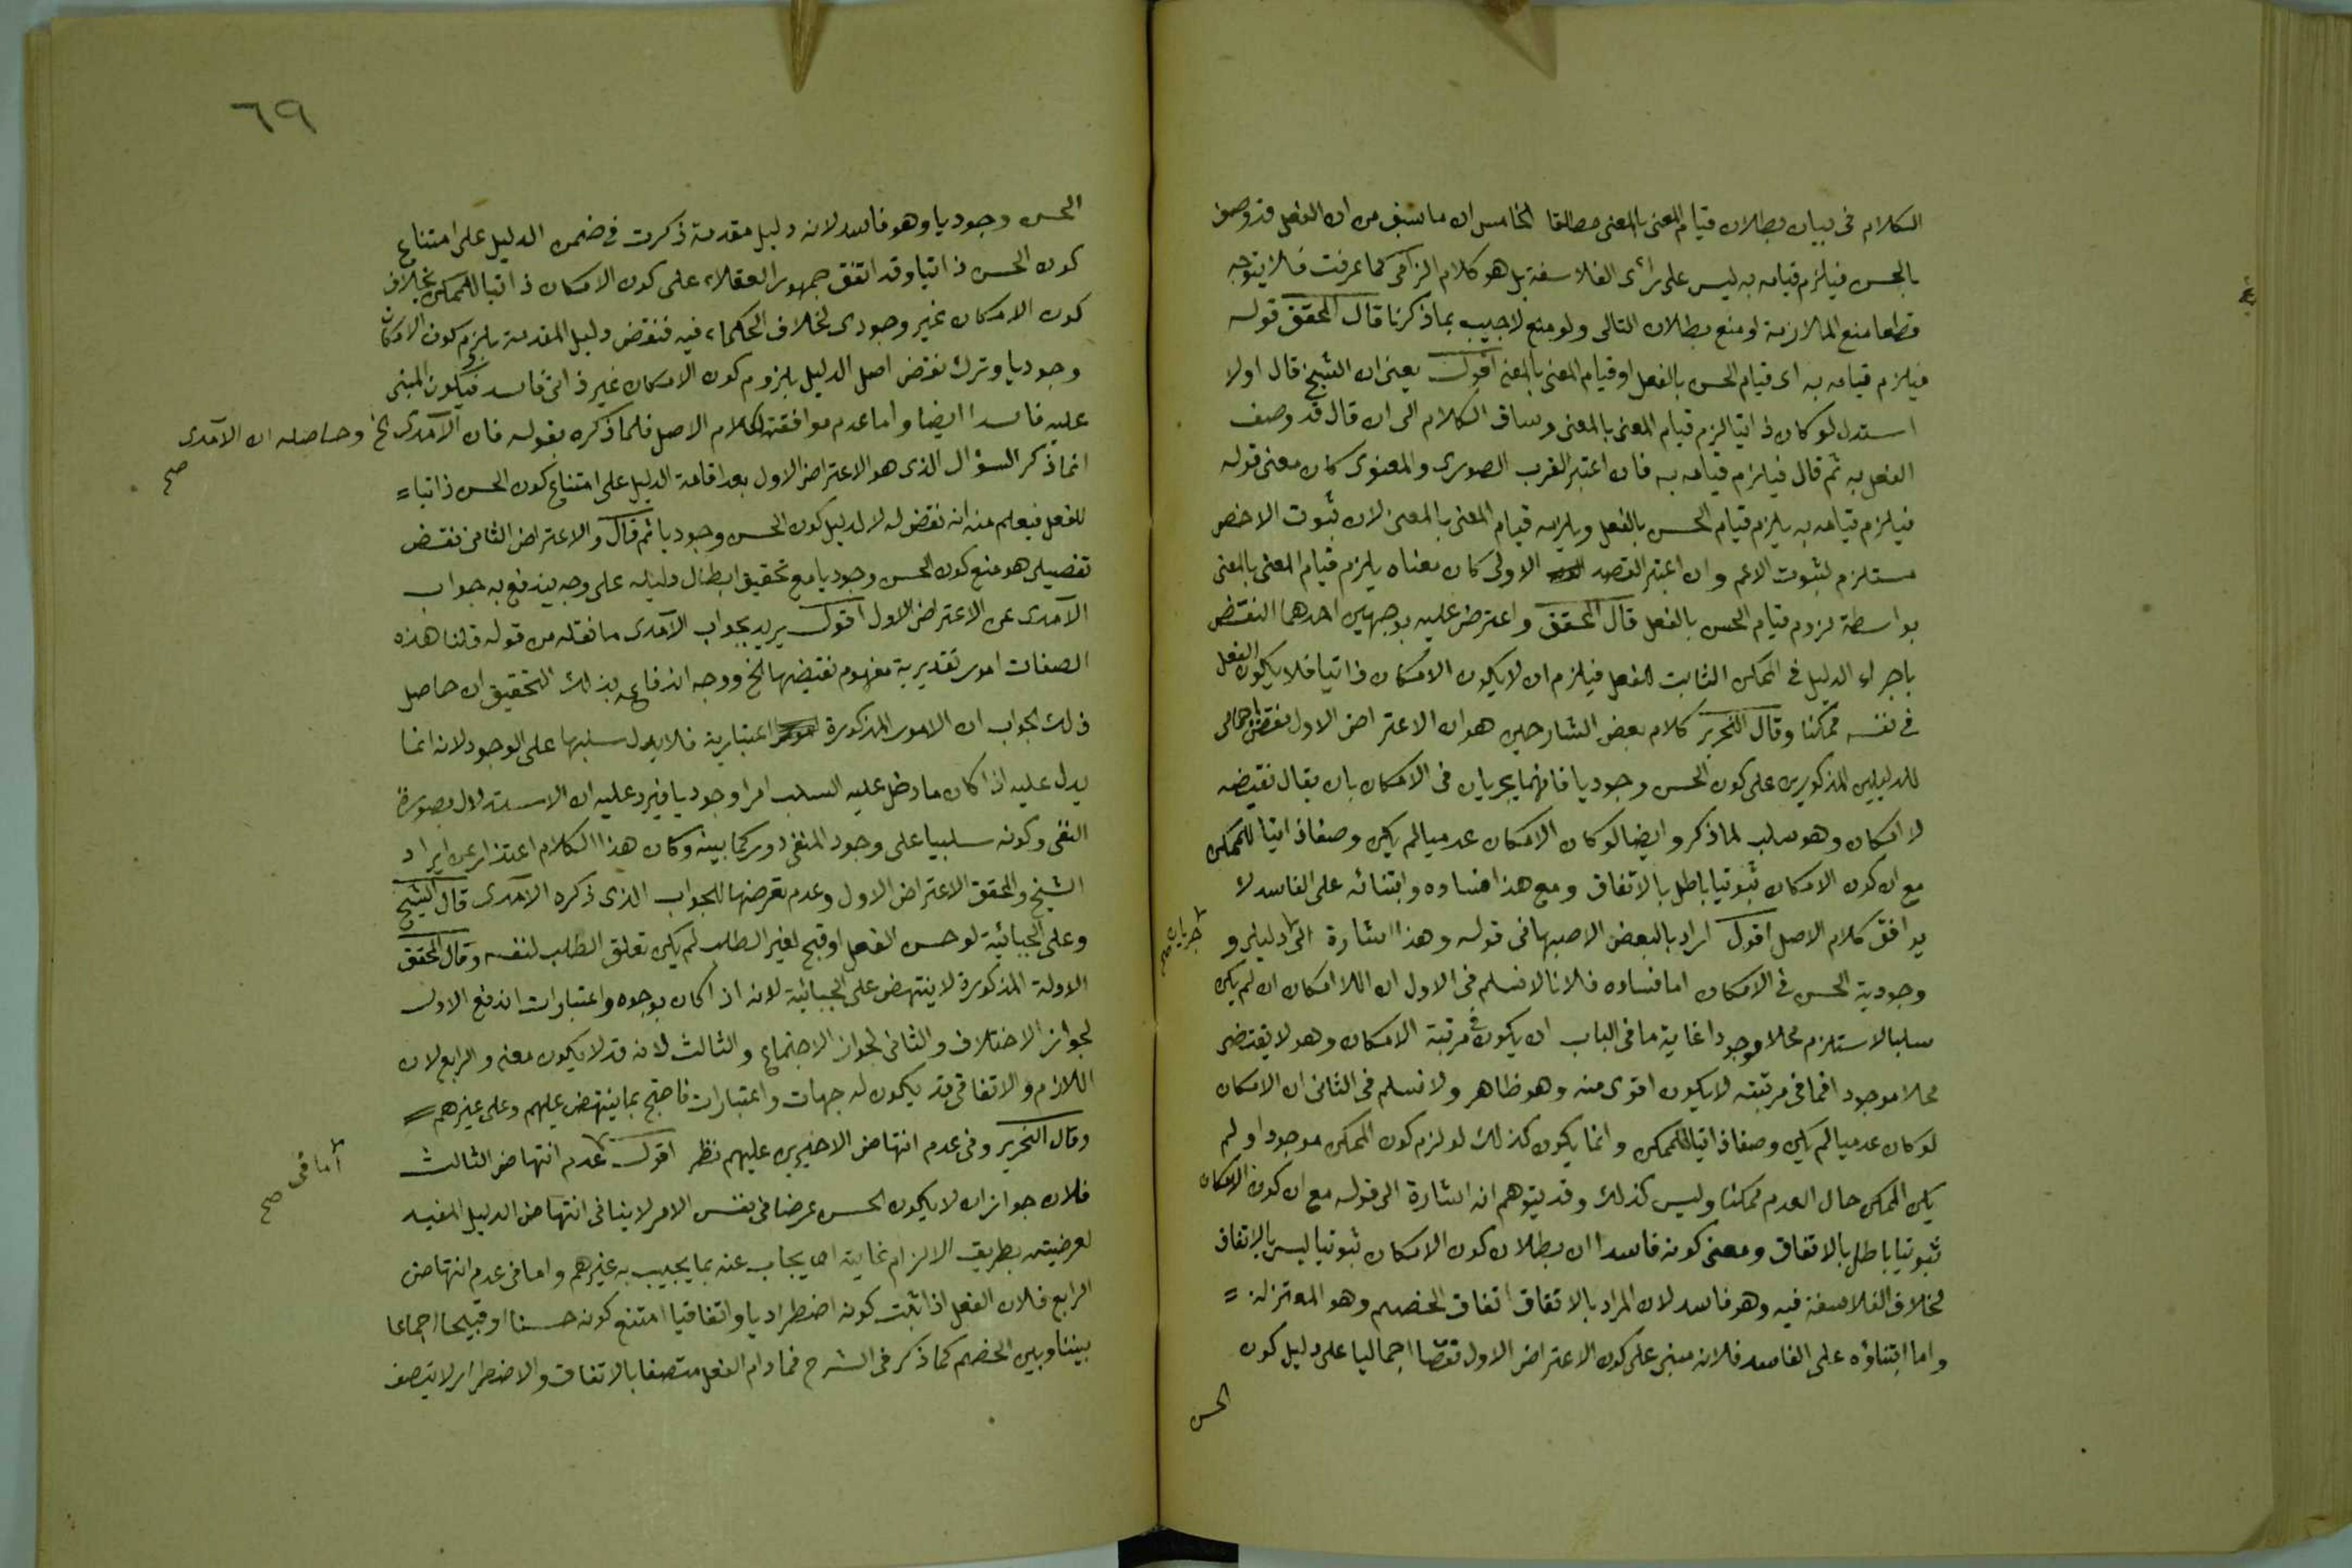 الكلام فى بيان بطلان قيام المعنى بالمعنى مطلقا الخامس ان ما سبق من ان الفعل قد وصف
بالحسن فيلزم قيامه به ليس على رأى الفلاسفة بل هو كلام الزامى كما عرفت فلا يتوجه
قطعا منع الملازمة او منع بطلان التالى ولو منع لاجيب بما ذكرنا قال المحقق قوله
فيلزم قيامه به اى قيام الحسن بالفعل او قيام المعنى بالمعنى اقول يعنى ان الشيخ قال اولا
استدل لو كان ذاتيا لزم قيام المعنى بالمعنى وساق الكلام الى ان قال قد وصف
الفعل به ثم قال فيلزم قيامه به فان اعتبر القرب الصورى والمعنوى كان معنى قوله
فيلزم قيامه به يلزم قيام الحسن بالفعل ويلزمه قيام المعنى بالمعنى لان ثبوت الاخص
مستلزم لثبوت الاعم وان اعتبر القصد الاولى كان معناه يلزم قيام المعنى بالمعنى
بواسطة لزوم قيام الحسن بالفعل قال المحقق واعترض عليه بوجهين احدهما النقض
باجراء الدليل فى الممكن الثابت للفعل فيلزم ان لا يكون الامكان ذاتيا فلا يكون الفعل
فى نفسه ممكنا وقال النحرير كلام بعض الشارحين هو ان الاعتراض الاول نقض اجمالى
للدليلين المذكورين على كون الحسن وجوديا فانهما يجريان فى الامكان بان يقال نقيضه
لا امكان وهو سلب لما ذكر وايضا لو كان الامكان عدميا لم يكن وصفا ذاتيا للممكن
مع ان كون الامكان ثبوتيا باطل بالاتفاق ومع هذا فساده وابتنائه على الفاسد لا
يوافق كلام الاصل اقول اراد بالبعض الاصبهانى قوله وهذا اشارة الى دليلى و
جريان صح
وجودية الحسن فى الامكان اما فساده فلانا لا نسلم فى الاول ان اللا امكان ان لم يكن
سلبا لاستلزم محلا موجودا غاية ما فى الباب ان يكون فى مرتبة الامكان وهو لا يقتضى
محلا موجودا فما فى مرتبته لا يكون اقوى منه وهو ظاهر ولا نسلم فى الثانى ان الامكان
لو كان عدميا لم يكن وصفا ذاتيا للممكن وانما يكون كذلك لو لزم كون الممكن موجودا ولم
يكن الممكن حال العدم ممكنا وليس كذلك وقد يتوهم انه اشارة الى قوله مع ان كون الامكان
ثبوتيا باطل بالاتفاق ومعنى كونه فاسدا ان بطلان كون الامكان ثبوتيا ليس بالاتفاق
لخلاف الفلاسفة فيه وهو فاسد لان المراد بالاتفاق اتفاق الخصم وهو المعتزلة =
واما ابتناؤه على الفاسد فلانه مبنى على كون الاعتراض الاول نقضا اجماليا على دليل كون
الحسن
٦٩
الحسن وجوديا وهو فاسد لانه دليل مقدمة ذكرت فى ضمن الدليل على امتناع
كون الحسن ذاتيا وقد اتفق جمهور العقلاء على كون الامكان ذاتيا للممكن بخلاف
كون الامكان غير وجودى لخلاف الحكماء فيه فنقض دليل المقدمة بلزوم كون الامكان
وجوديا وترك نقض اصل الدليل بلزوم كون الامكان غير ذاتى فاسد فيكون المبنى
عليه فاسدا ايضا واما عدم موافقته لكلام الاصل فلما ذكره بقوله فان الآمدى الخ وحاصله ان الآمدى
صح
انما ذكر السؤال الذى هو الاعتراض الاول بعد اقامة الدليل على امتناع كون الحسن ذاتيا =
للفعل فيعلم منه انه نقض له لا لدليل كون الحسن وجوديا ثم قال والاعتراض الثانى نقض
تفصيلى هو منع كون الحسن وجوديا مع تحقيق ابطال دليله على وجه يندفع به جواب
الآمدى عن الاعتراض الاول اقول يريد بجواب الآمدى ما نقله من قوله قلنا هذه
الصفات امور تقديرية مفهوم نقيضها الخ ووجه اندفاعه بذلك التحقيق ان حاصل
ذلك الجواب ان الامور المذكورة اعتبارية فلا يدل سلبها على الوجود لانه انما
يدل عليه اذا كان ما دخل عليه السلب امرا وجوديا فيرد عليه ان الاستدلال بصورة
النفى وكونه سلبيا على وجود المنفى دور كما بينه وكان هذا الكلام اعتذار عن ايراد
الشيخ والمحقق الاعتراض الاول وعدم تعرضهما للجواب الذى ذكره الآمدى قال الشيخ
وعلى الجبائية لو حسن الفعل او قبح لغير الطلب لم يكن تعلق الطلب لنفسه وقال المحقق
الادلة المذكورة لا ينتهض على الجبائية لانه اذا كان بوجوه واعتبارات اندفع الاول
لجواز الاختلاف والثانى لجواز الاجتماع والثالث لانه قد لا يكون معنى والرابع لان
اللازم والاتفاقى قد يكون له جهات واعتبارات فاحتج بما ينتهض عليهم وعلى غيرهم =
وقال النحرير وفى عدم انتهاض الاخيرين عليهم نظر اقول عدم انتهاض الثالث
اما فى صح
فلان جواز ان لا يكون الحسن عرضا فى نفس الامر لا ينافى انتهاض الدليل المفيد
لعرضيته بطريق الالزام غايته ان يجاب عنه بما يجيب به غيرهم واما فى عدم انتهاض
الرابع فلان الفعل اذا ثبت كونه اضطراديا واتفاقيا امتنع كونه حسنا او قبيحا اجماعا
بيننا وبين الخصم كما ذكر فى الشرح فما دام الفعل متصفا بالاتفاق والاضطرار لا يتصف